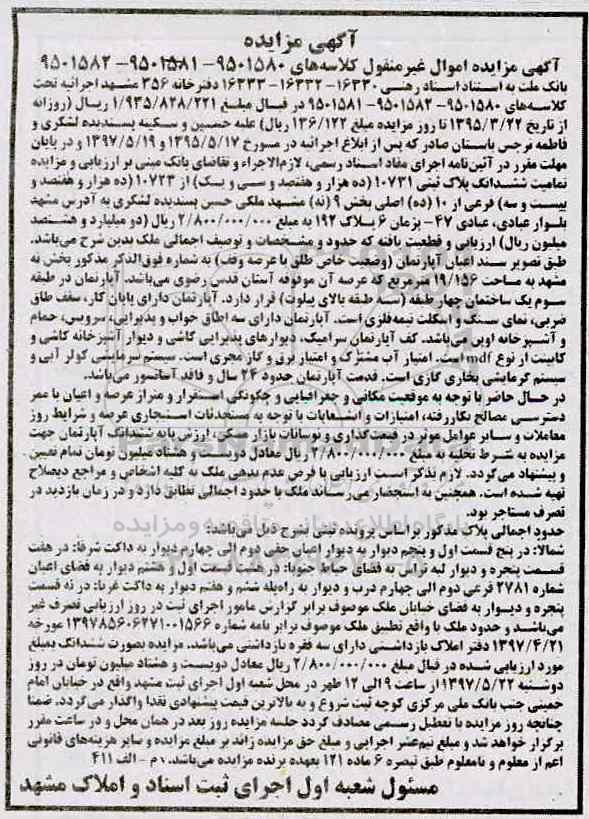 آگهی مزایده
آگهی مزایده اموال غیرمنقول کلاسه‌های ۹۵۰۱۵۸۰- ۹۵۰۱۵۸۱- ۹۵۰۱۵۸۲
بانک ملت به استناد اسناد رهنی ۱۶۳۳۰- ۱۶۳۳۲- ۱۶۳۳۳ دفترخانه ۳۵۶ مشهد اجرائیه تحت
کلاسه‌های ۹۵۰۱۵۸۰- ۹۵۰۱۵۸۲- ۹۵۰۱۵۸۱ در قبال مبلغ ۱/۹۳۵/۸۲۸/۲۲۱ ریال (روزانه
از تاریخ ۱۳۹۵/۳/۲۲ تا روز مزایده مبلغ ۱۳۶/۱۲۲ ریال) علیه حسین و سکینه پسندیده لشکری و
فاطمه نرجس باستان صادر که پس از ابلاغ اجرائیه در مورخ ۱۳۹۵/۵/۱۷ و ۱۳۹۷/۵/۱۹ و در پایان
مهلت مقرر در آئین‌نامه اجرای مفاد اسناد رسمی، لازم‌الاجراء و تقاضای بانک مبنی بر ارزیابی و مزایده
تمامیت ششدانگ پلاک ثبتی ۱۰۷۳۱ (ده هزار و هفتصد و سی و یک) از ۱۰۷۲۳ (ده هزار و هفتصد و
بیست و سه) فرعی از ۱۰ (ده) اصلی بخش ۹ (نه) مشهد ملکی حسین پسندیده لشکری به آدرس مشهد
بلوار عبادی، عبادی ۴۷- پژمان ۶ پلاک ۱۹۲ به مبلغ ۲/۸۰۰/۰۰۰/۰۰۰ ریال (دو میلیارد و هشتصد
میلیون ریال) ارزیابی و قطعیت یافته که حدود و مشخصات و توصیف اجمالی ملک بدین شرح می‌باشد.
طبق تصویر سند اعیان آپارتمان (وضعیت خاص طلق با عرصه وقف) به شماره فوق‌الذکر مذکور بخش نه
مشهد به مساحت ۱۹/۱۵۶ مترمربع که عرصه آن موقوفه آستان قدس رضوی می‌باشد. آپارتمان در طبقه
سوم یک ساختمان چهار طبقه (سه طبقه بالای پیلوت) قرار دارد. آپارتمان دارای پایان کار، سقف طاق
ضربی، نمای سنگ و اسکلت نیمه‌فلزی است. آپارتمان دارای سه اطاق خواب و پذیرایی، سرویس، حمام
و آشپزخانه اوپن می‌باشد. کف آپارتمان سرامیک، دیوارهای پذیرایی کاشی و دیوار آشپزخانه کاشی و
کابینت از نوع mdf است. امتیاز آب مشترک و امتیاز برق و گاز مجزی است. سیستم سرمایشی کولر آبی و
سیستم گرمایشی بخاری گازی است. قدمت آپارتمان حدود ۲۴ سال و فاقد آسانسور می‌باشد.
در حال حاضر با توجه به موقعیت مکانی و جغرافیایی و چگونگی استقرار و متراژ عرصه و اعیان با ممر
دسترسی مصالح بکاررفته، امتیازات و انشعابات با توجه به مستحدثات استیجاری عرصه و شرایط روز
معاملات و سایر عوامل موثر در قیمت‌گذاری و نوسانات بازار مسکن، ارزش پایه ششدانگ آپارتمان جهت
مزایده به شرط تخلیه به مبلغ ۲/۸۰۰/۰۰۰/۰۰۰ ریال معادل دویست و هشتاد میلیون تومان تمام تعیین
و پیشنهاد می‌گردد. لازم بذکر است ارزیابی با فرض عدم بدهی ملک به کلیه اشخاص و مراجع ذیصلاح
تهیه شده است. همچنین به استحضار می‌رساند ملک با حدود اجمالی تطابق دارد و در زمان بازدید در
تصرف مستاجر بود.
حدود اجمالی پلاک مذکور براساس پرونده ثبتی بشرح ذیل می‌باشد:
شمالا: در پنج قسمت اول و پنجم دیوار به دیوار اعیان حقی دوم الی چهارم دیوار به داکت شرقا: در هفت
قسمت پنجره و دیوار لبه تراس به فضای حیاط جنوبا: در هشت قسمت اول و هشتم دیوار به فضای اعیان
شماره ۲۷۸۱ فرعی دوم الی چهارم درب و دیوار به راه‌پله ششم و هفتم دیوار به داکت غربا: در نه قسمت
پنجره و دیوار به فضای خیابان ملک موصوف برابر گزارش مامور اجرای ثبت در روز ارزیابی تصرف غیر
می‌باشد و حدود ملک با واقع تطبیق ملک موصوف برابر نامه شماره ۱۳۹۷۸۵۶۰۶۲۷۱۰۰۱۵۶۶ مورخه
۱۳۹۷/۴/۲۱ دفتر املاک بازداشتی دارای سه فقره بازداشتی می‌باشد. مزایده بصورت ششدانگ بمبلغ
مورد ارزیابی شده در قبال مبلغ ۲/۸۰۰/۰۰۰/۰۰۰ ریال معادل دویست و هشتاد میلیون تومان در روز
دوشنبه ۱۳۹۷/۵/۲۲ از ساعت ۹ الی ۱۲ ظهر در محل شعبه اول اجرای ثبت مشهد واقع در خیابان امام
خمینی جنب بانک ملی مرکزی کوچه ثبت شروع و به بالاترین قیمت پیشنهادی نقدا واگذار می‌گردد. ضمنا
چنانچه روز مزایده با تعطیل رسمی مصادف گردد جلسه مزایده روز بعد در همان محل و در ساعت مقرر
برگزار خواهد شد و مبلغ نیم‌عشر اجرایی و مبلغ حق مزایده زائد بر مبلغ مزایده و سایر هزینه‌های قانونی
اعم از معلوم و نامعلوم طبق تبصره ۶ ماده ۱۲۱ بعهده برنده مزایده می‌باشد. م - الف ۴۱۱
مسئول شعبه اول اجرای ثبت اسناد و املاک مشهد